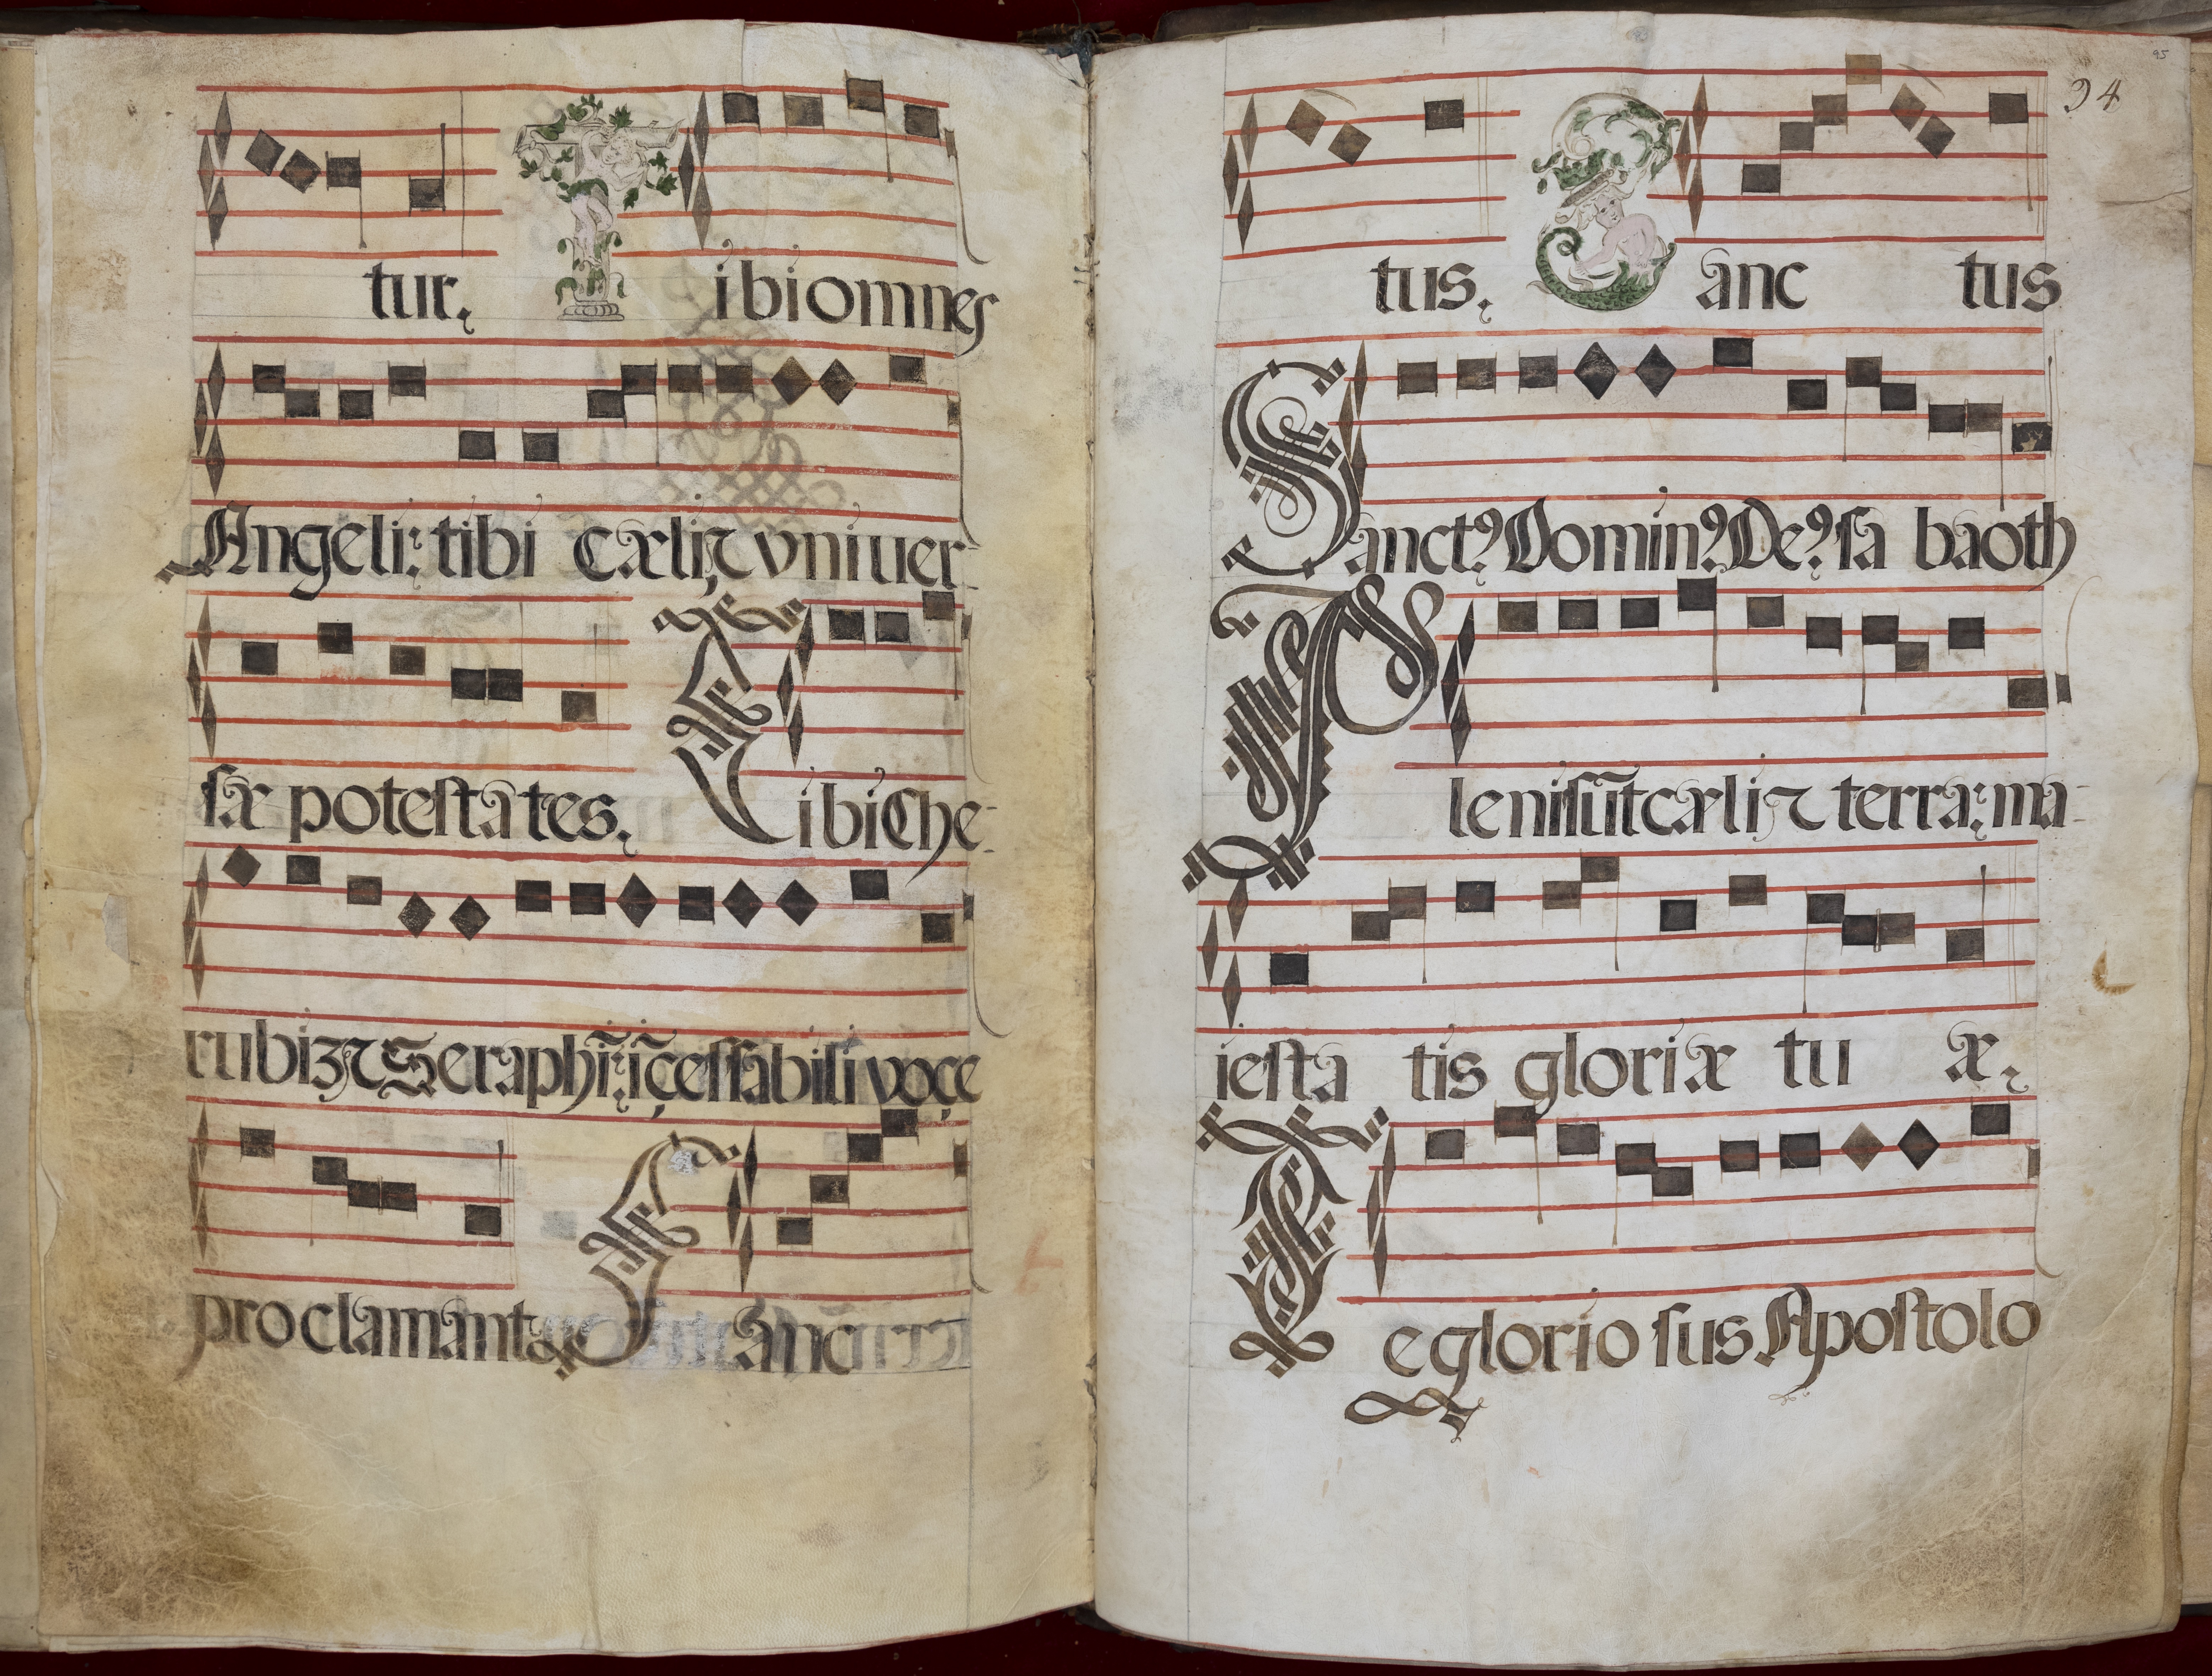 tur. Tibi omnes
Angeli: tibi cæli ⁊ vniuer-
sæ potestates. Tibi Che-
rubi3 ⁊ Seraphĩ: ĩçessabili voçe
proclamant. Sanc
95
94
tus. Sanc tus
Sanctꝰ Dominꝰ Deꝰ sa baoth
Pleni sũt cæli ⁊ terra: ma-
iesta tis gloriæ tu æ.
Te glorio sus Apostolo